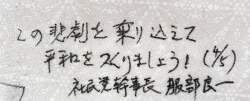 この悲劇を乗り込えて
平和をつくりましょう！(4/5)
社民党幹事長 服部良一